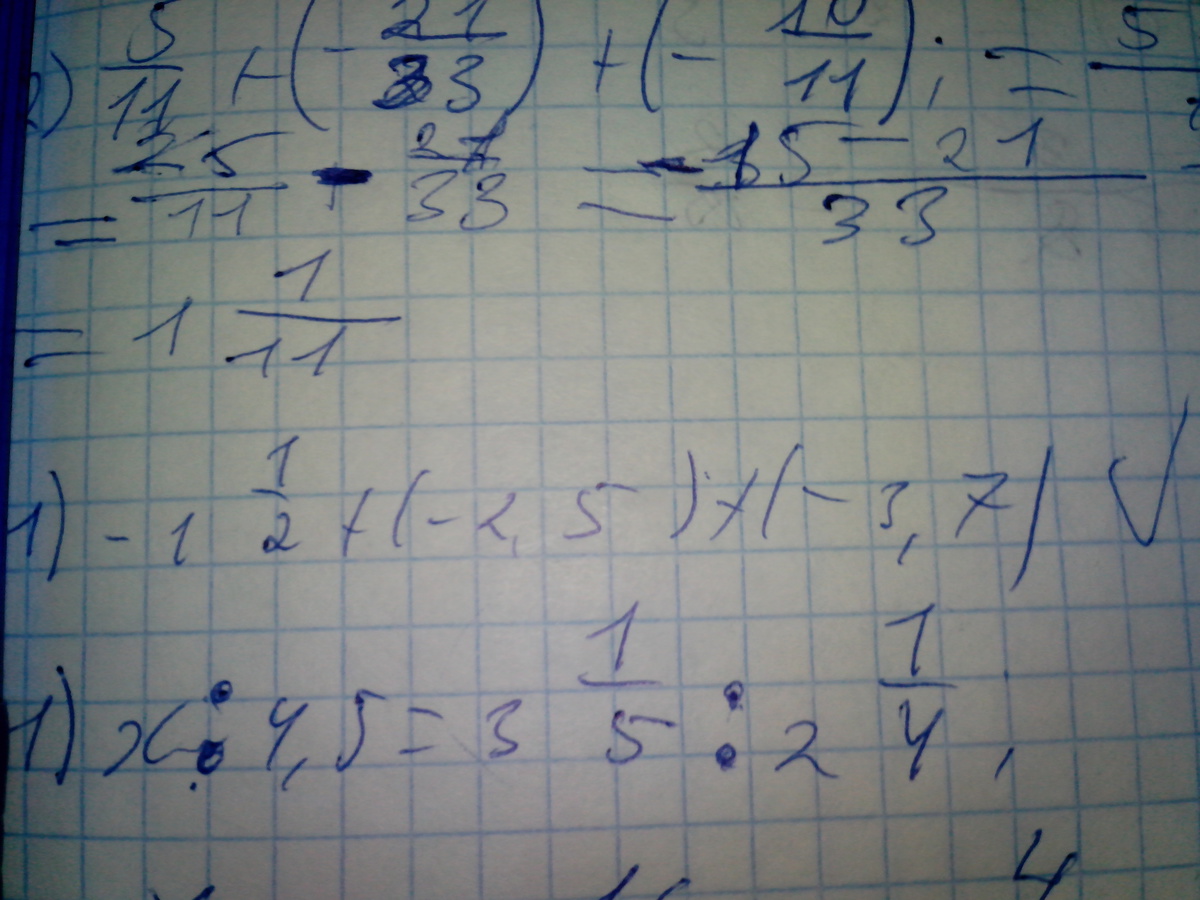 2) 5/11 + (- 21/33) + (- 10/11); = 5
= 25/11 - 21/33 = -15-21/33 =
= 1 1/11
1) -1 1/2 + (-2,5) + (-3,7) √
1) x : 4,5 = 3 1/5 : 2 1/4,
4